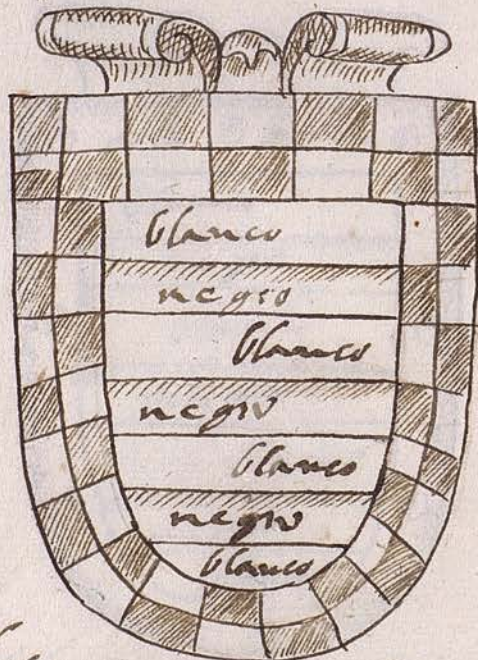 blanco
negro
blanco
negro
blanco
negro
blanco